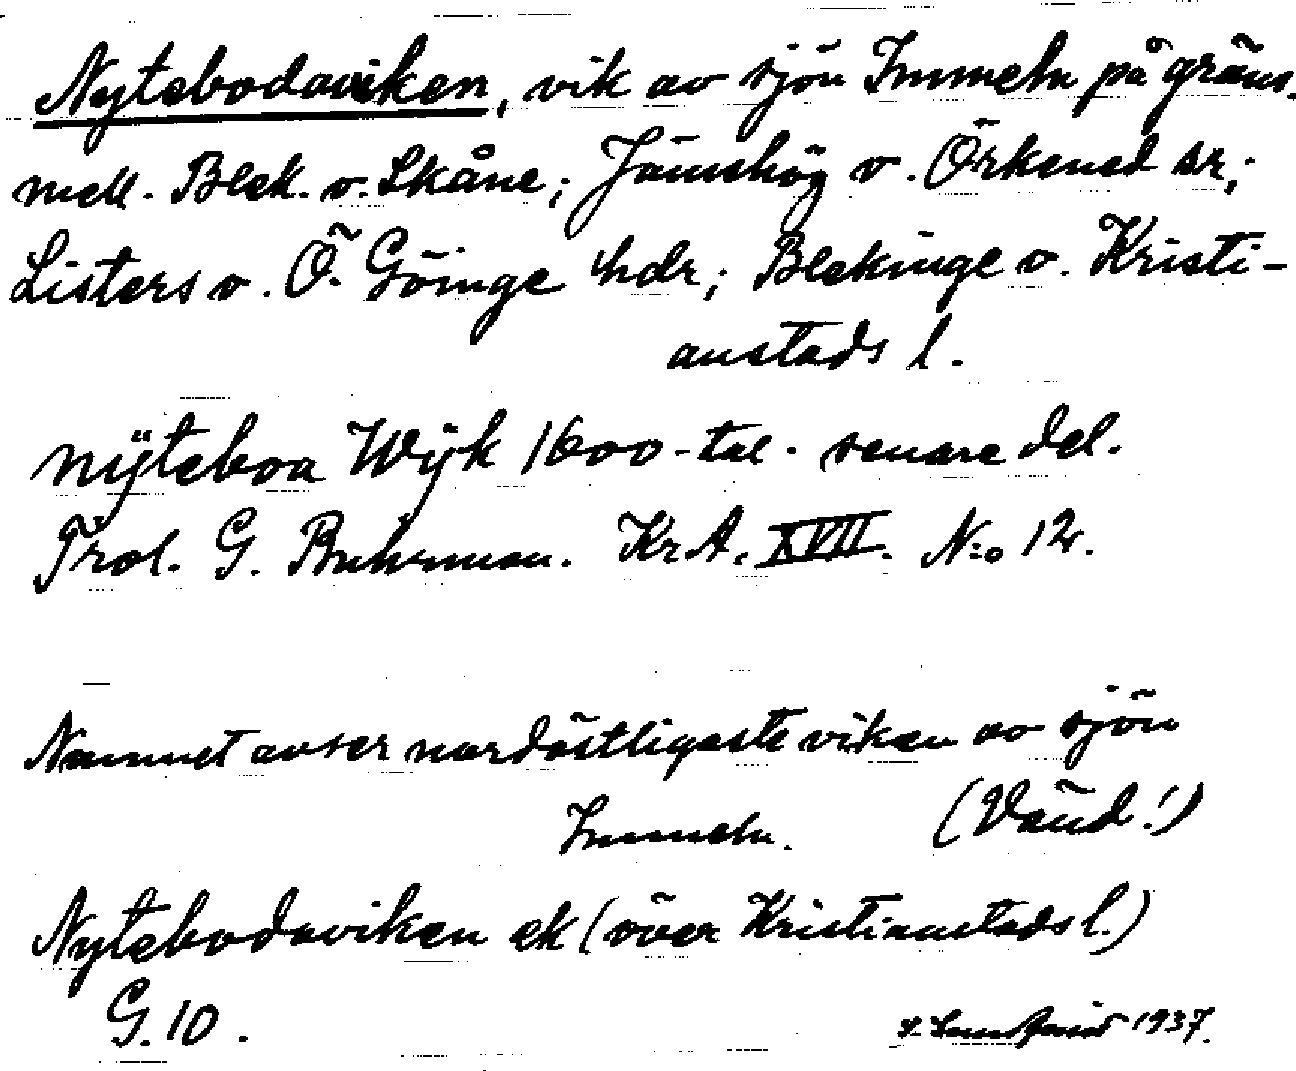 Nytebodaviken, vik av sjön Immeln på gräns.
mell. Blek. o. Skåne; Jämshög o. Örkened sr;
Listers o. Ö. Göinge hdr; Blekinge o. Kristi-
anstads l.
nÿteboa Wÿk 1600-tal. senare del.
Trol. G. Buhrman. Kr.A. XVII. N:o 12.
Namnet avser nordöstligaste viken av sjön
Immeln. (Vänd!)
Nytebodaviken ek (över Kristianstads l.)
G. 10. 1937.